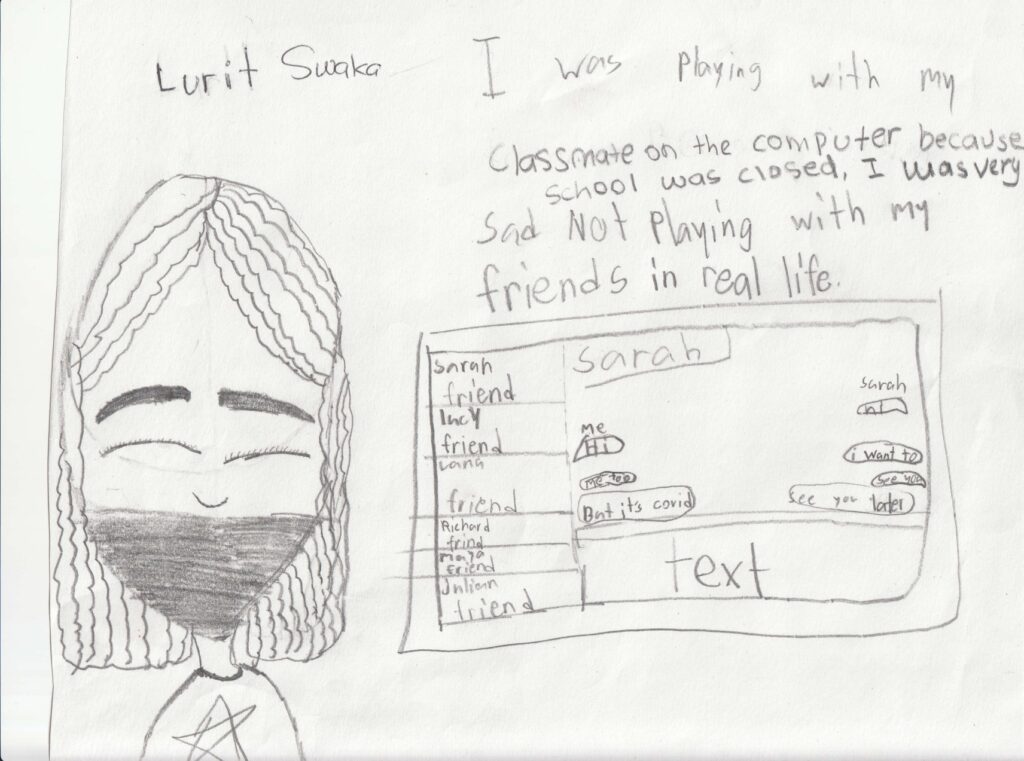 Lurit Swaka
I was playing with my
Classmate on the computer because
school was closed, I was very
Sad NOT Playing with my
friends in real life.
Sarah
friend
lucy
friend
Lana
friend
Richard
frind
maya
Friend
Julian
friend
Sarah
Sarah
hi
Me
Hi
i want to
see you
me too
But it's covid
See you later
text